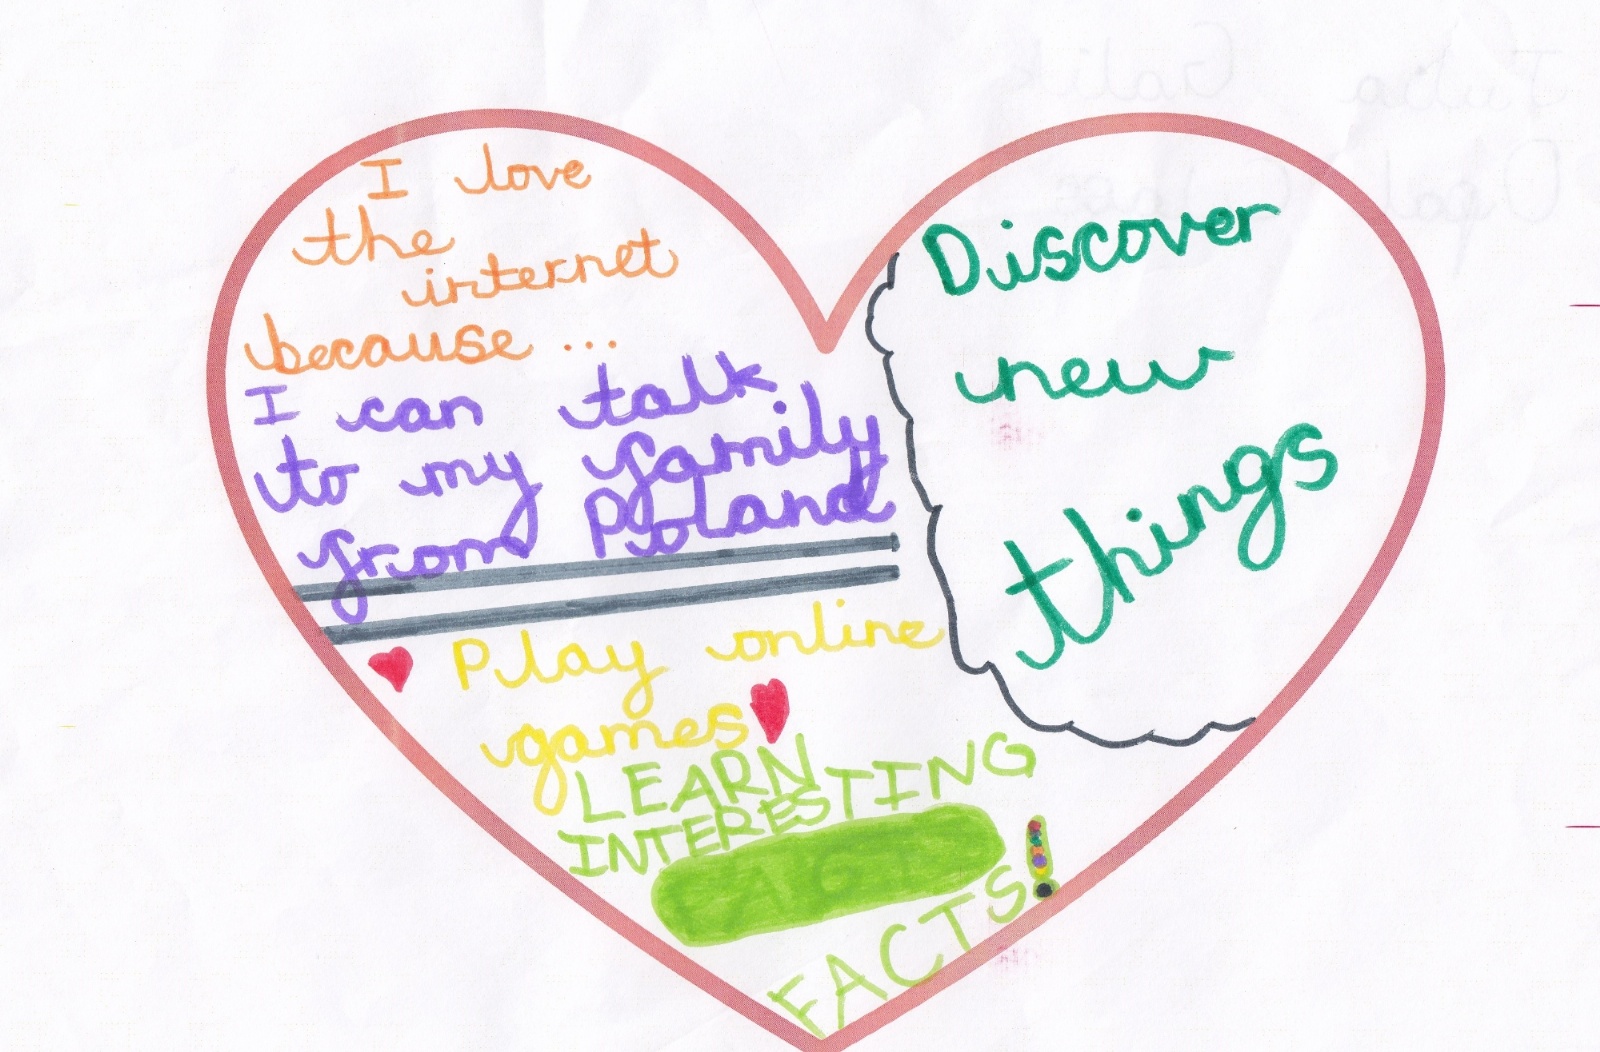 I love
the
internet
because ...
I can talk
to my family
from Poland
Play online
games
LEARN
INTERESTING
FACTS!
Discover
new
things